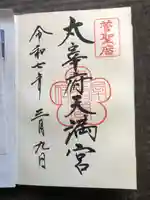 菅聖廟
太宰府天満宮
令和七年三月九日